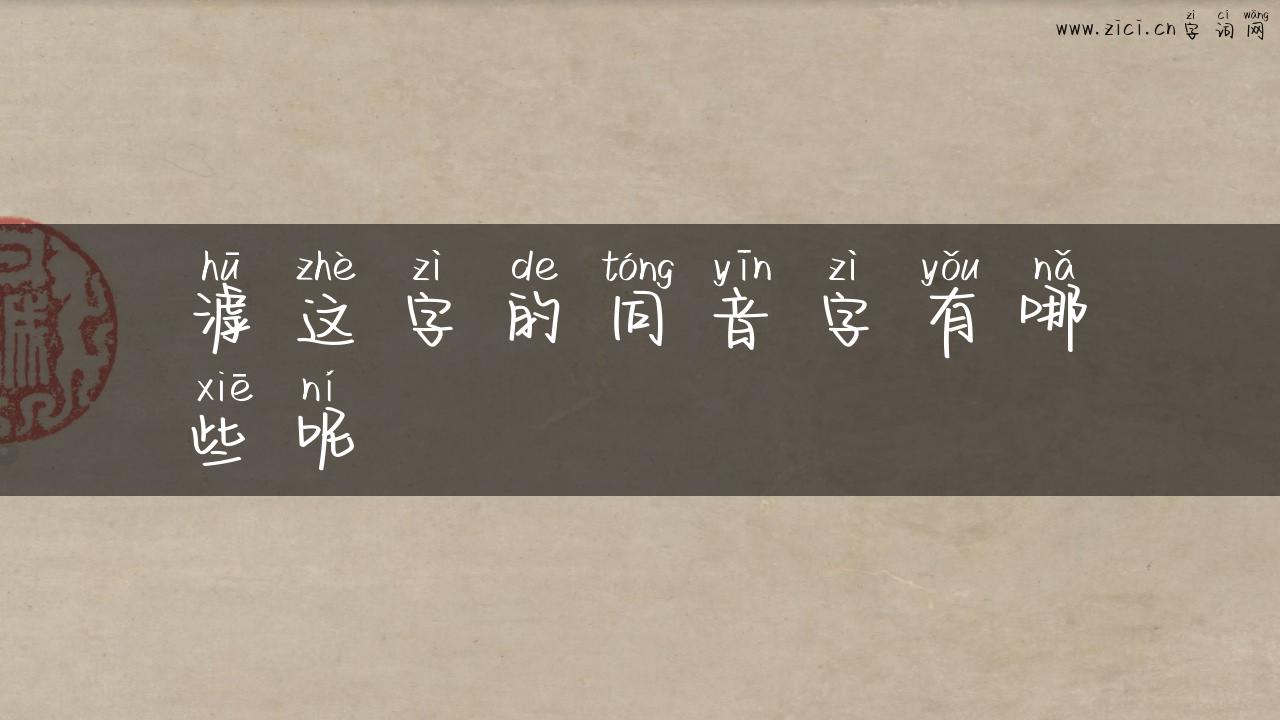 zì cí wǎng
www.zici.cn 字词网
hū zhè zì de tóng yīn zì yǒu nǎ
滹这字的同音字有哪
xiē ní
些呢